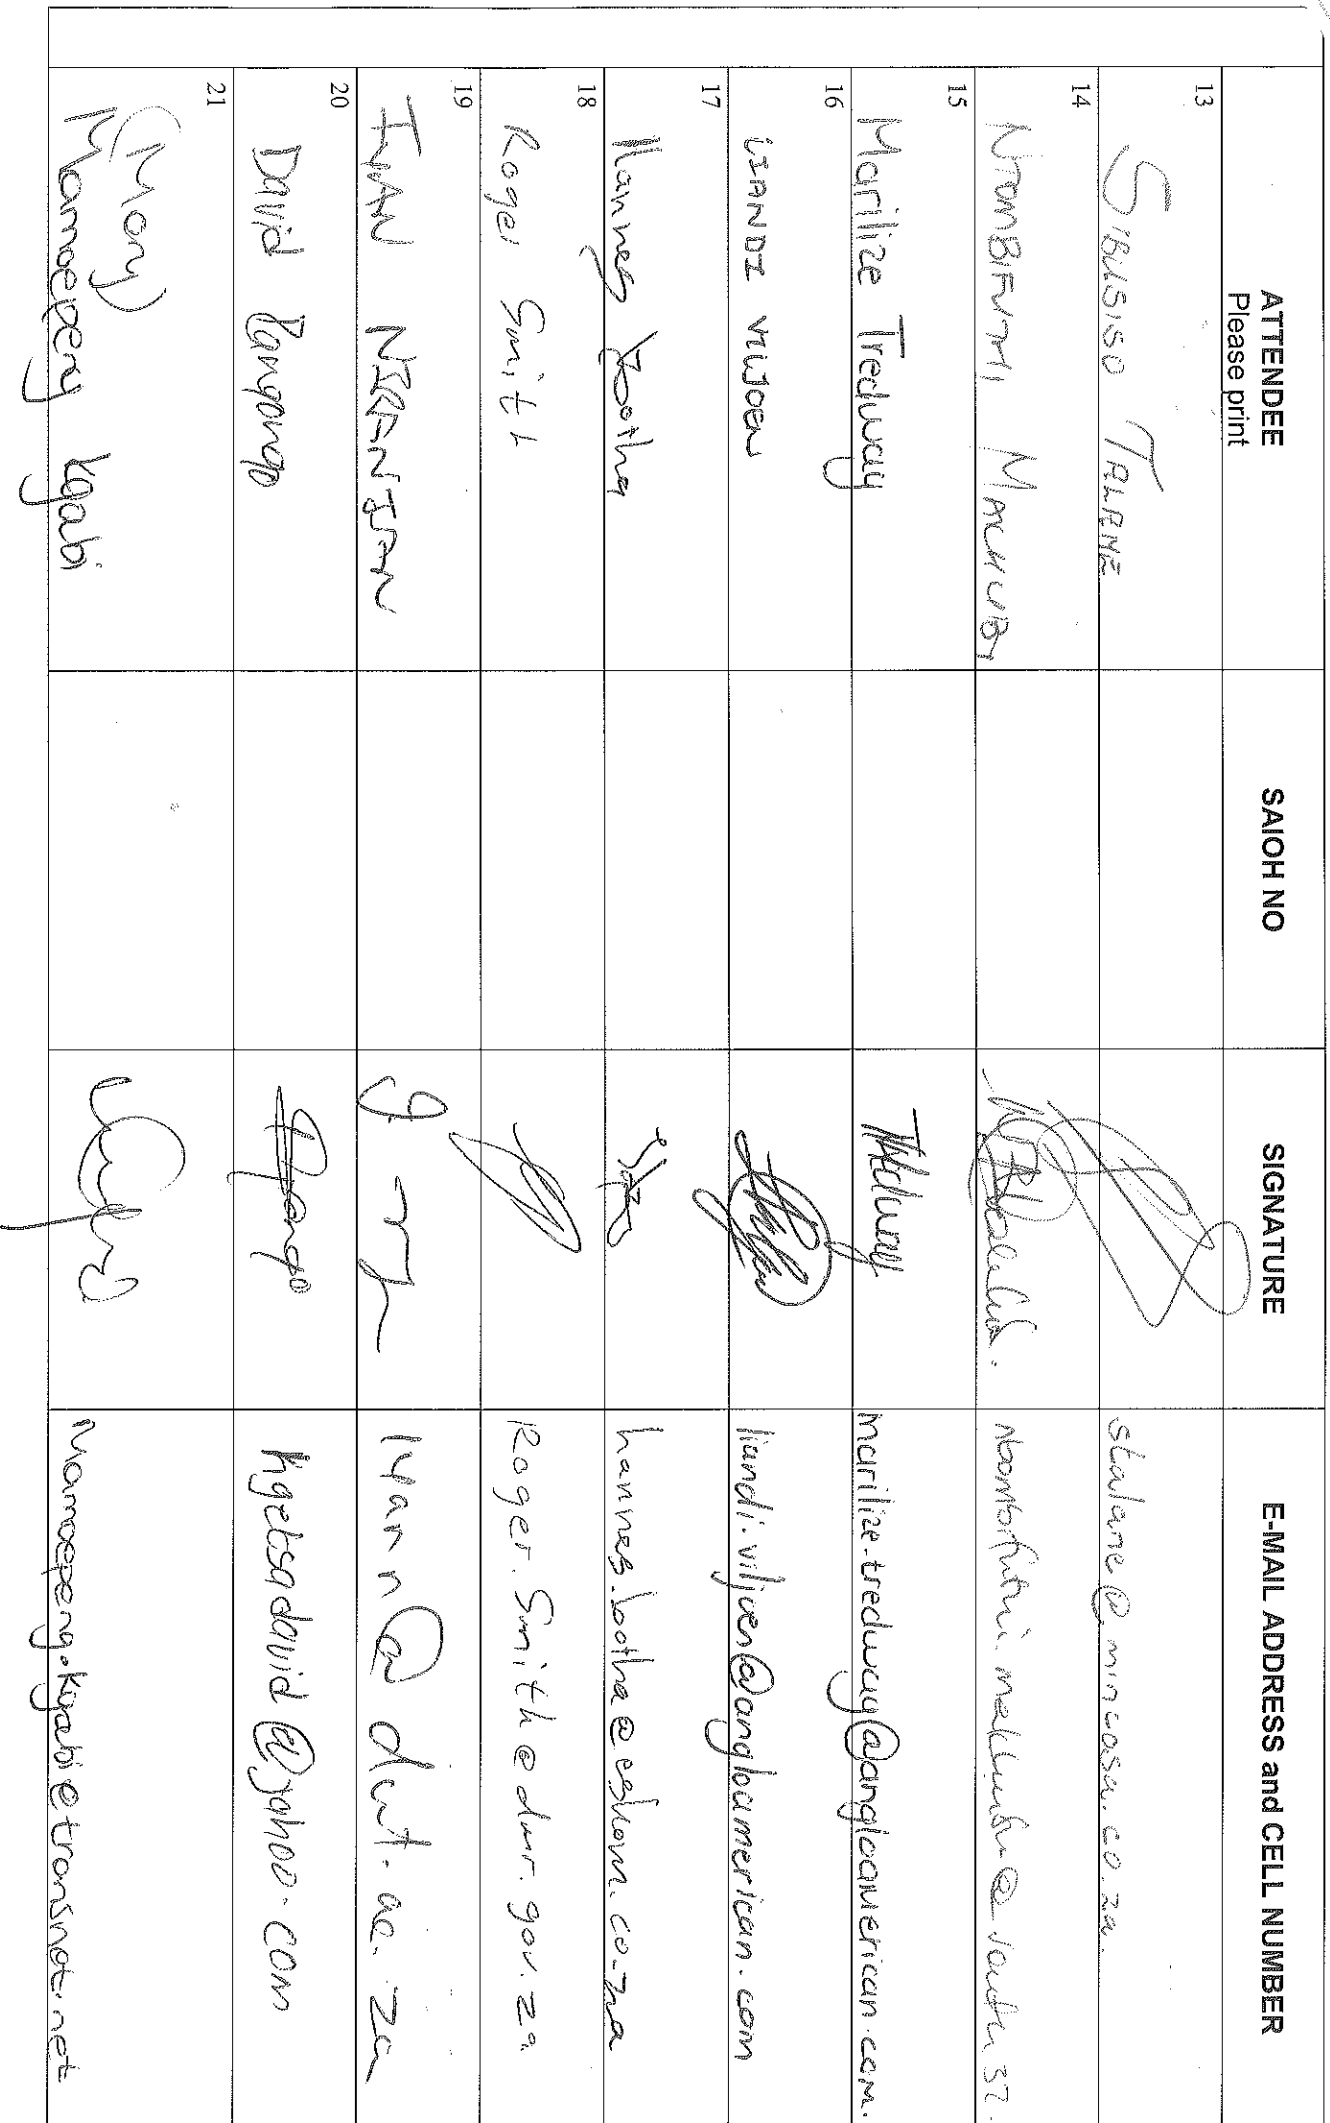 ATTENDEE SAIOH NO SIGNATURE E-MAIL ADDRESS and CELL NUMBER
Please print
13
SIBUSISO TALANE stalane@mincosa.co.za.
14
NTOMBIFUTHI MACHUBA
15
Marilize Tredway marilize.tredway@angloamerican.com.
16
LIANDI VILJOEN liandi.viljoen@angloamerican.com
17
Hannes Botha hannes.botha@eskom.co.za
18
Roger Smith Roger.Smith@dmr.gov.za
19
IVAN NIRANJAN ivann@dut.ac.za
20
David kgetsadavid@yahoo.com
21
(Mary)
Mamoepeng Kgabi Mamoepeng.Kgabi@transnet.net